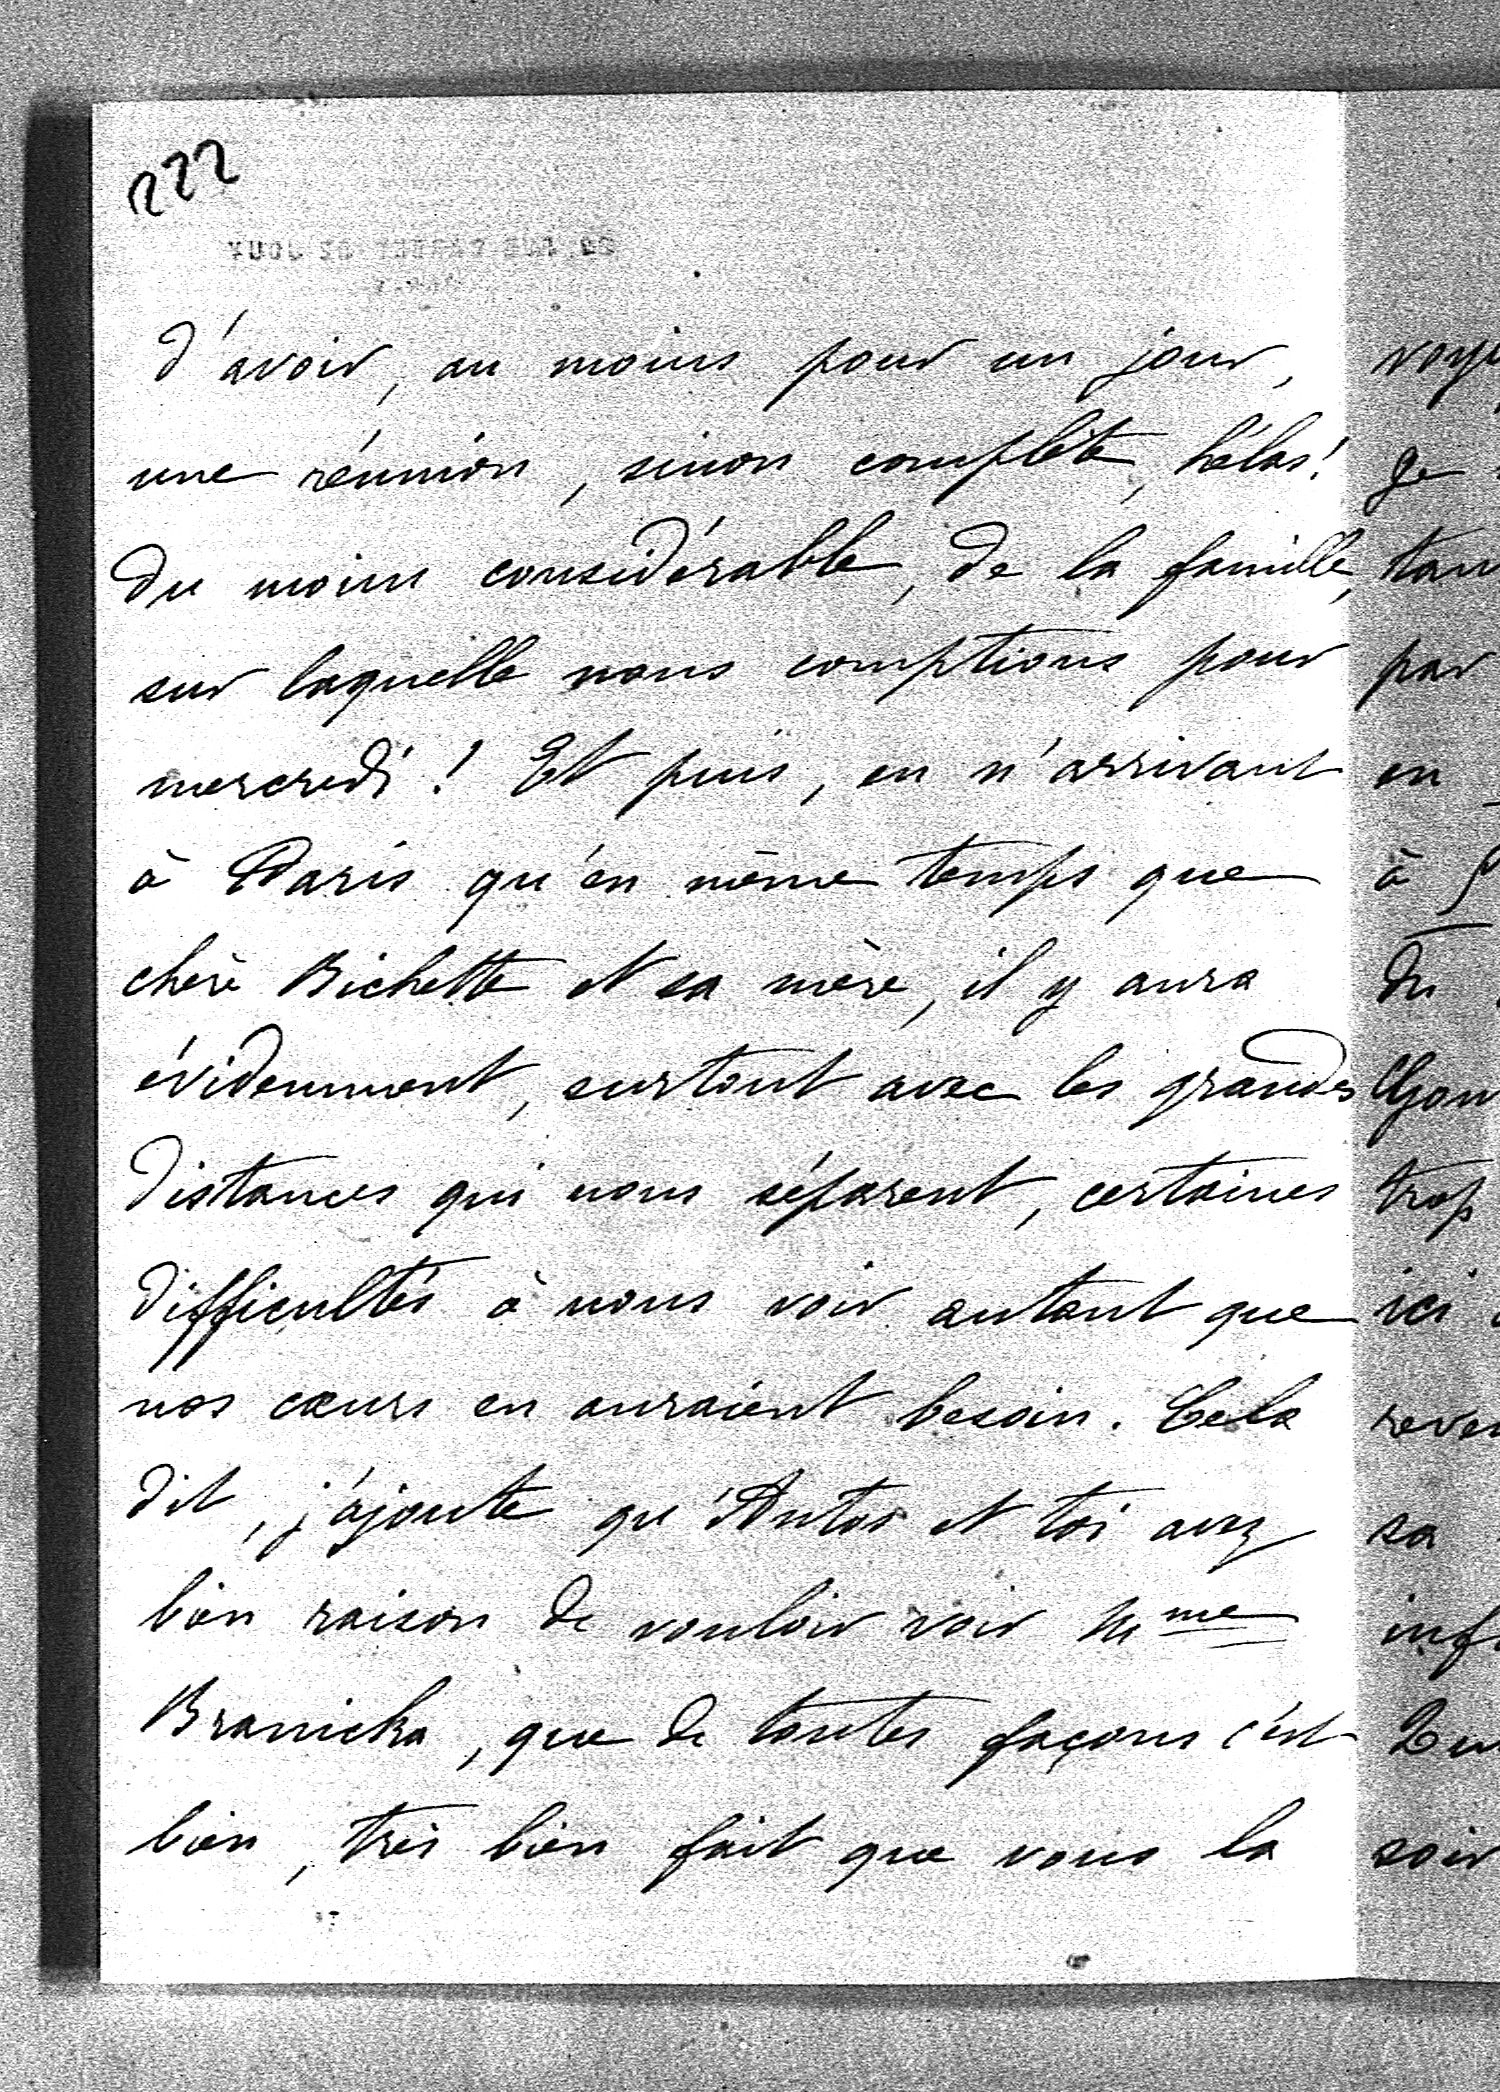 222
d'avoir, au moins pour un jour,
une réunion, sinon complète, hélas!
du moins considérable, de la famille,
sur laquelle nous comptions pour
mercredi! Et puis, en n'arrivant
à Paris qu'en même temps que
chère Bichette et sa mère, il y aura
évidemment, surtout avec les grandes
distances qui nous séparent, certaines
difficultés à nous voir autant que
nos cœurs en auraient besoin. Cela
dit, j'ajoute qu'Antos et toi avez
bien raison de vouloir voir Mme
Branicka, que de toutes façons c'est
bien, très bien fait que vous la